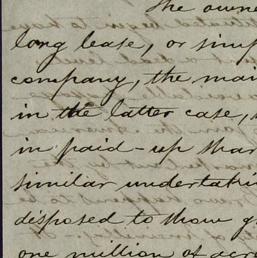 The owne
long lease, or simp
company, the mai
in the latter case,
in paid-up shar
similar undertaki
disposed to throw
one million of acre